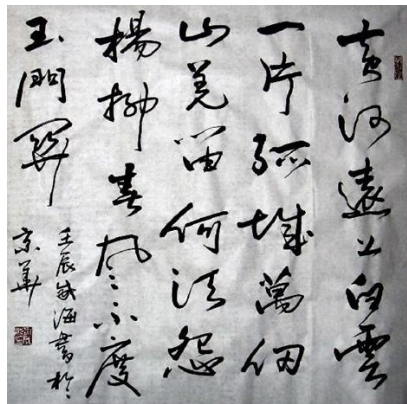 黄河遠上白雲
一片孤城萬仞
山羌笛何须怨
楊柳春風不度
玉門關
壬辰海書於
京華